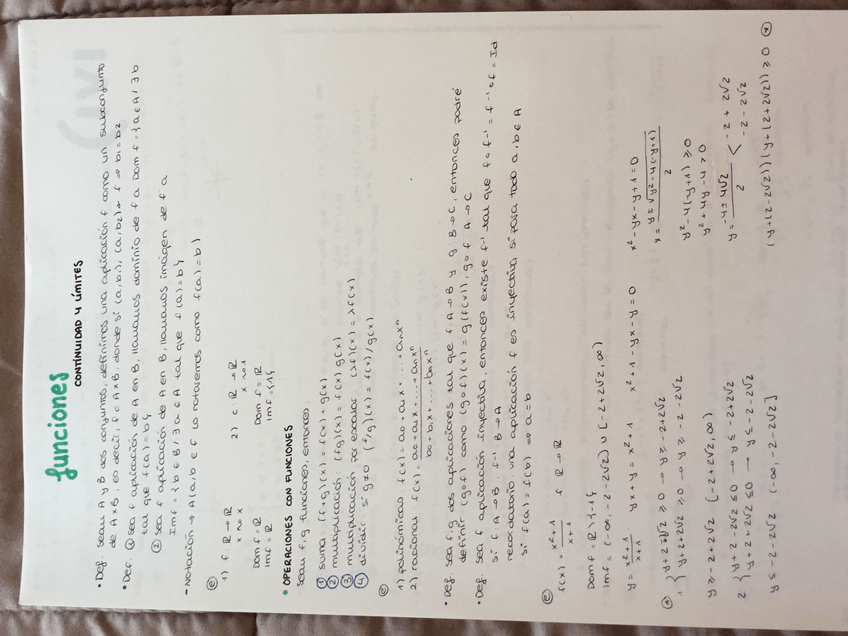 funciones
CONTINUIDAD Y LÍMITES
• Def. Sean A y B dos conjuntos, definimos una aplicación f como un subconjunto
de A×B es decir f ⊂ A×B, donde si (a,b₁), (a,b₂) ∈ f ⇒ b₁=b₂
• Def. ① sea f aplicación de A en B, llamamos dominio de f a Dom f = {a ∈ A / ∃ b
tal que f(a)=b}
② sea f aplicación de A en B, llamamos imágen de f a
Im f = {b ∈ B / ∃ a ∈ A tal que f(a)=b}
- Notación → A (a,b ∈ f lo notaremos como f(a)=b)
1) f: ℝ → ℝ
x ↝ x
Dom f = ℝ
Im f = ℝ
2) c: ℝ → ℝ
x ↝ 1
Dom f = ℝ
Im f = {1}
• OPERACIONES CON FUNCIONES
sean f,g funciones, entonces:
① suma: (f+g)(x) = f(x) + g(x)
② multiplicación: (fg)(x) = f(x) g(x)
③ multiplicación por escalar (λf)(x) = λf(x)
④ dividir si g≠0 (f/g)(x) = f(x)/g(x)
1) polinómicas f(x) = a₀ + a₁x + ... + aₙxⁿ
2) racional f(x) = a₀ + a₁x + ... + aₙxⁿ
b₀ + b₁x + ... + bₙxⁿ
• Def. Sea f,g dos aplicaciones tal que f A→B y g: B→C, entonces podré
definir (g∘f) como (g∘f)(x) = g(f(x)), g∘f A→C
• Def. Sea f aplicación inyectiva, entonces existe f⁻¹ tal que f∘f⁻¹ = f⁻¹∘f = Id
si f A→B f⁻¹ B→A
recordatorio una aplicación f es inyectiva si para todo a,b ∈ A
si f(a) = f(b) ⇒ a=b
f(x) = x²+1 / x+1 f ℝ→ℝ
Dom f = ℝ\{-1}
Im f = (-∞, -2-2√2) ∪ [-2+2√2, ∞)
y = x²+1 / x+1 yx + y = x²+1 x²+1-yx-y=0 x²-yx-y+1=0
x = y ± √y²-4(-y+1) / 2
y²-4(-y+1) ≥ 0
y²+4y-4 ≥ 0
y = -4±4√2 / 2 < -2+2√2
-2-2√2
(y+(2-2√2))(y+(2+2√2)) ≥ 0 (*)
1 { y+2-2√2 ≥ 0 → y ≥ -2+2√2
y+2+2√2 ≥ 0 → y ≥ -2-2√2
y ≥ -2+2√2 [-2+2√2, ∞)
2 { y+2-2√2 ≤ 0 → y ≤ -2+2√2
y+2+2√2 ≤ 0 → y ≤ -2-2√2
y ≤ -2-2√2 (-∞, -2-2√2]